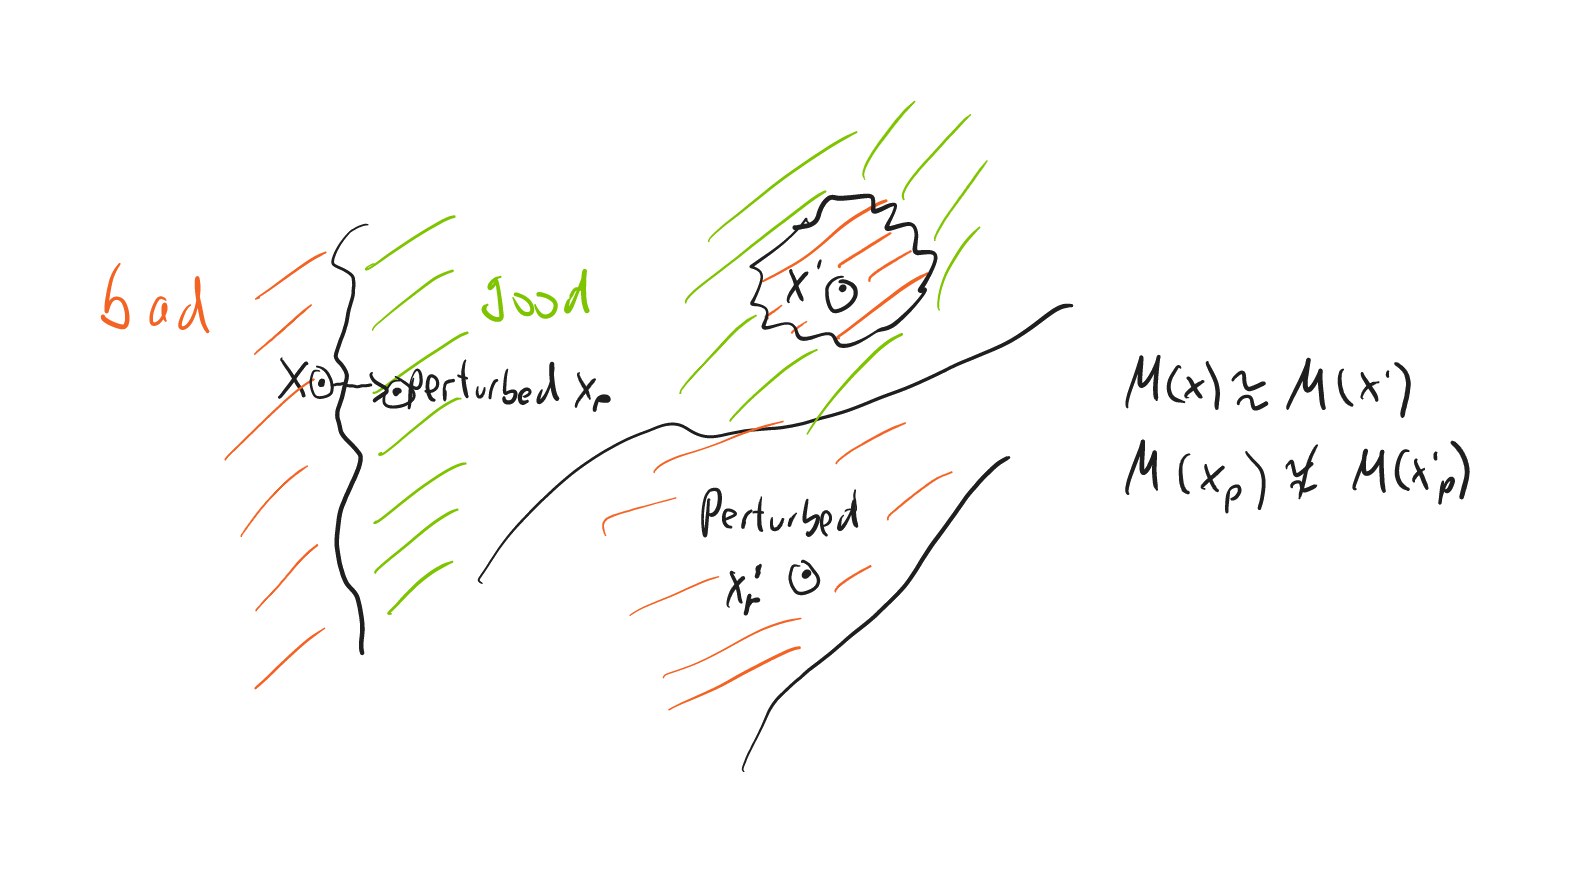 bad
good
X
perturbed Xₚ
X'
Perturbed
Xₚ'
M(x) ≈ M(x')
M(xₚ) ≉ M(x'ₚ)